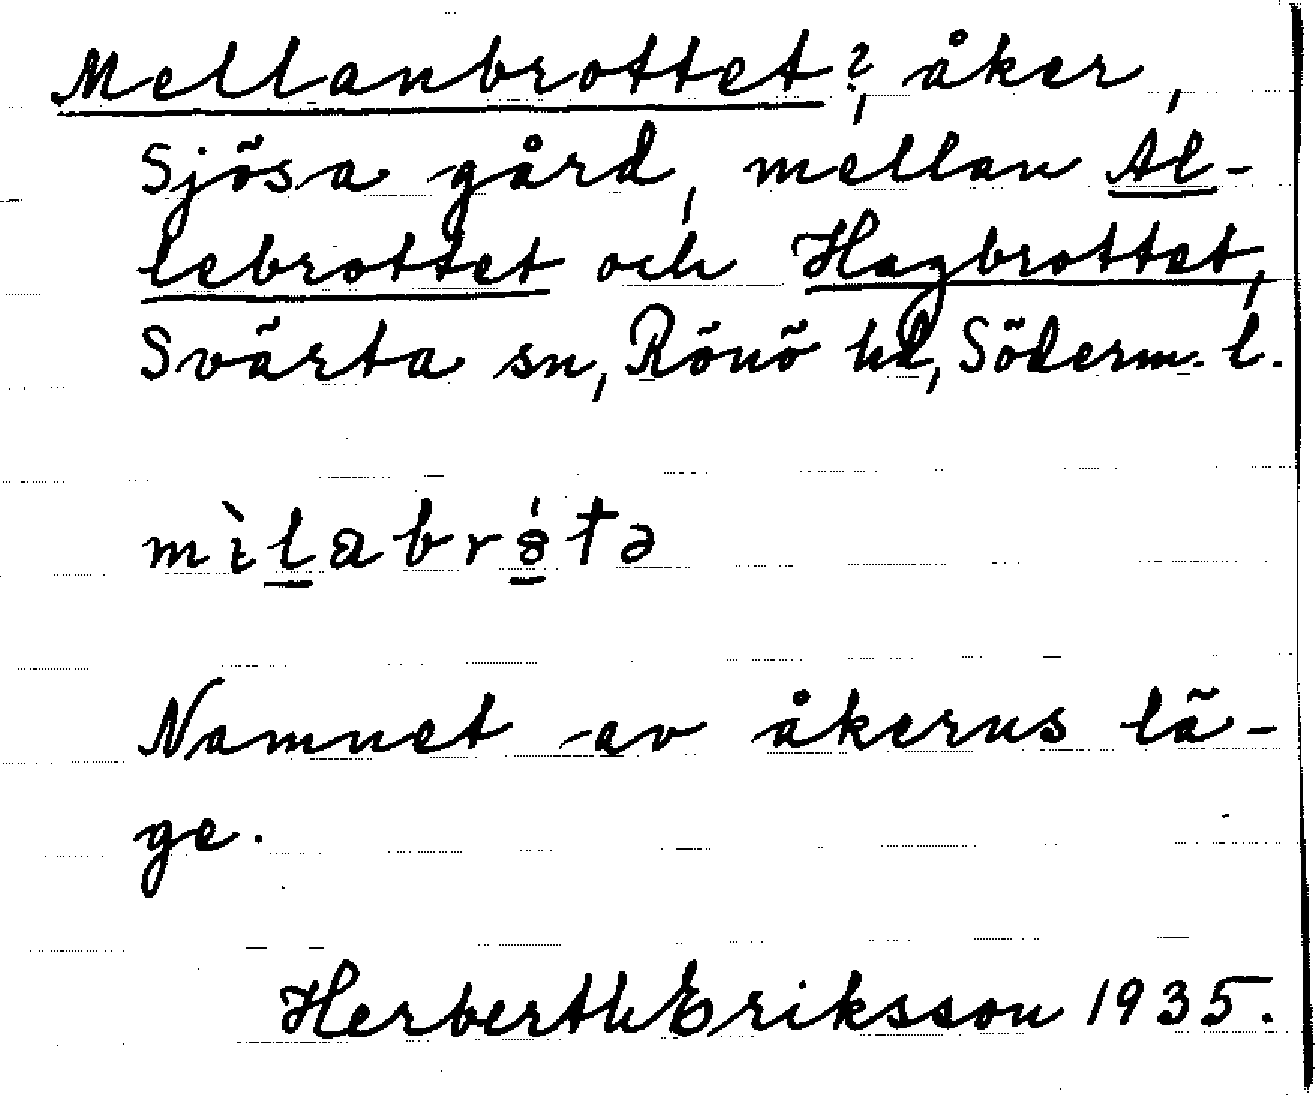 Mellanbrottet?, åker,
Sjösa gård, mellan Al-
lebrottet och Hagbrottet,
Svärta sn, Rönö hd, Söderm. l.
mìlabrótə
Namnet av åkerns lä-
ge.
Herberth Eriksson 1935.